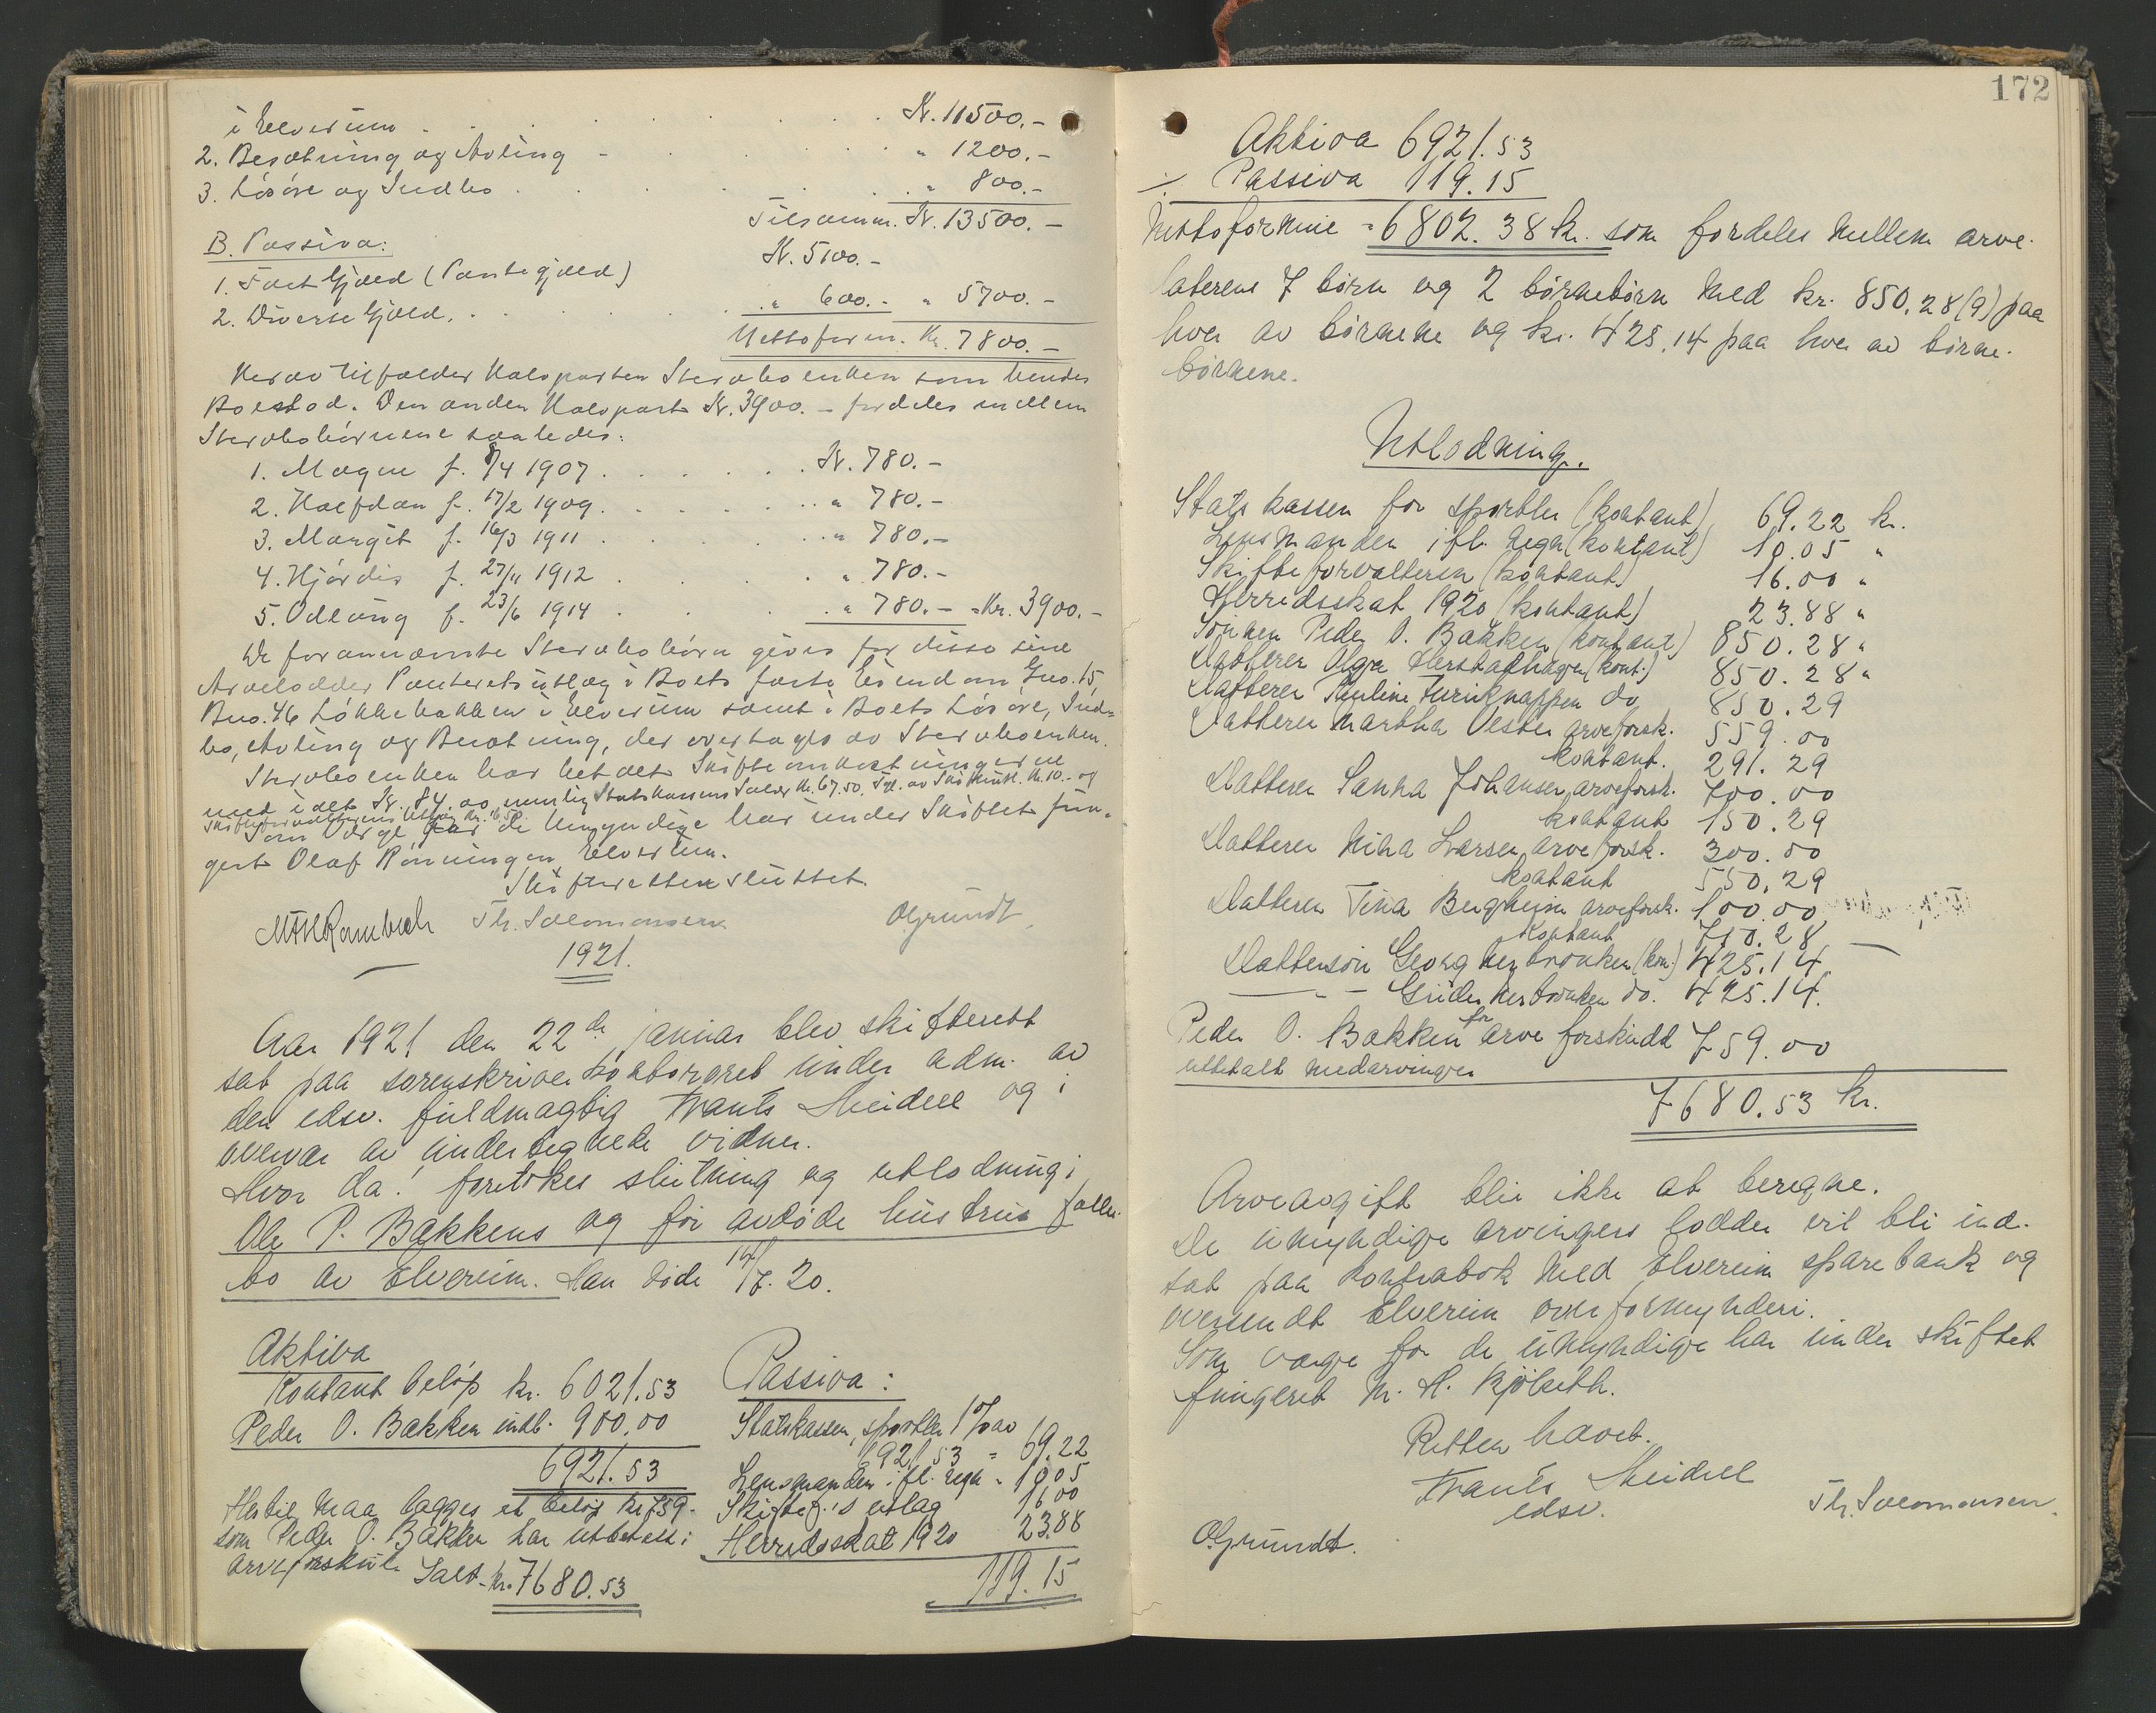 i Elverum . . . . . . . Kr. 11500.-
2. Besætning og Avling - . . . . " 1200.-
3. Løsøre og Indbo . . . . . " 800.-
Tilsamm. Kr. 13500.-
B. Passiva:
1. Fast Gjæld (Pantegjæld) Kr. 5100.-
2. Diverse Gjæld. . . . . " 600.- " 5700.-
Nettoform. Kr. 7800.-
Herav tilfalder Halvparten Stervboenken som hendes
Boeslod. Den anden Halvpart Kr. 3900.- fordeles mellem
Stervbobørnene saaledes:
1. Magne f. 8/4 1907 . . . . . Kr. 780.-
2. Halfdan f. 17/2 1909. . . . . " 780.-
3. Margit f. 16/3 1911 . . . . . " 780.-
4. Hjördis f. 27/11 1912 . . . . . " 780.-
5. Odlaug f. 23/6 1914 . . . . " 780.- = Kr. 3900.-
De forannævnte Stervbobørn gives for disse sine
Arvelodder Panteretsutlæg i Boets faste Eiendom Gno. 15,
Bno. 46 Løkkebakken i Elverum samt i Boets Løsøre, Ind-
bo, Avling og Besætning, der overtages av Stervboenken.
Stervboenken har betalt Skifteomkostningerne
med ialt Kr. 84.00, nemlig Statskassens Salær Kr. 67.50, Kr. 10.- og
Skifteforvalterens Utlæg Kr. 6.50.
Som Værge for de Umyndige har under Skiftet fun-
gert Olaf Rønningen, Elverum.
Skifteretten sluttet.
Th. Solomonsen OGrundt
1921.
Aar 1921 den 22de januar blev skifterett
sat paa sorenskriverkontoret under adm. av
den edsv. fuldmægtig Frants Meidell og i
overvær av undertegnede vidner.
Hvor da: foretokes slutning og utlodning i
Ole P. Bakkens og før avdøde hustrus fælles-
bo av Elverum. Han døde 14/7. 20.
Aktiva
Kontant beløp kr. 6021.53
Peder O. Bakken indb. 900.00
6921.53
Hertil maa lægges et beløp kr 759.-
som Peder O. Bakken har utbetalt i
arveforskud. Ialt kr. 7680.53
Passiva:
Statskassen, sportler 1% av
6921.53 = 69.22
Lensmanden ifl. regn. 10.05
Skiftef.'s utlæg 16.00
Herredsskat 1920 23.88
119.15
172
Aktiva 6921.53
÷ Passiva 119.15
Nettoformue = 6802.38 kr. som fordeles mellem arve-
laterens 7 børn og 2 børnebørn med kr. 850.28 (9) paa
hver av børnene og kr. 425.14 paa hver av børne-
børnene.
Utlodning.
Statskassen for sportler (kontant) 69.22 kr.
Lensmanden ifl. regn (kontant) 10.05 "
Skifteforvalteren (kontant) 16.00 "
Herredsskat 1920 (kontant) 23.88 "
Sønnen Peder O. Bakken (kontant) 850.28 "
Datteren Olga Herstadhagen (kont.) 850.28 "
Datteren Pauline Furuknappen do 850.29
Datteren Martha Vesten arveforsk. 559.00
kontant. 291.29
Datteren Sanna Johansen arveforsk. 700.00
kontant 150.29
Datteren Nina Larsen arveforsk. 300.00
kontant 550.29
Datteren Tina Bergheim arveforsk. 100.00
kontant 750.28
Dattersøn Georg Nertrønken (kon.) 425.14
— " — Guder Nertrønken do. 425.14.
Peder O. Bakken for arveforskudt 759.00
utbetalt medarvinger
7680.53 kr.
Arveavgift blir ikke at beregne.
De umyndige arvingers lodder vil bli ind-
sat paa kontrabok med Elverum sparebank og
oversendt Elverum overformynderi.
Som værge for de umyndige har under skiftet
fungeret M. H. Kjølseth.
Retten hævet.
Frants Meidell
edsv.
Th. Solomonsen.
O.Grundt.